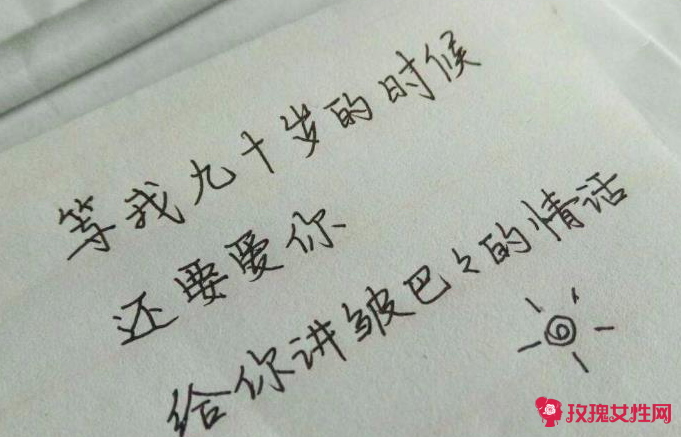 等我九十岁的时候
还要爱你
给你讲皱巴々的情话
玫瑰女性网